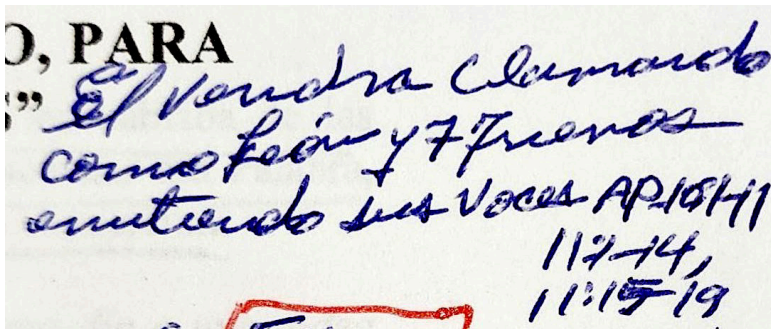 O, PARA
S” El vendra clamando
como León y 7 Truenos
emitiendo sus voces AP. 10:1-11
11:7-14,
11:15-19